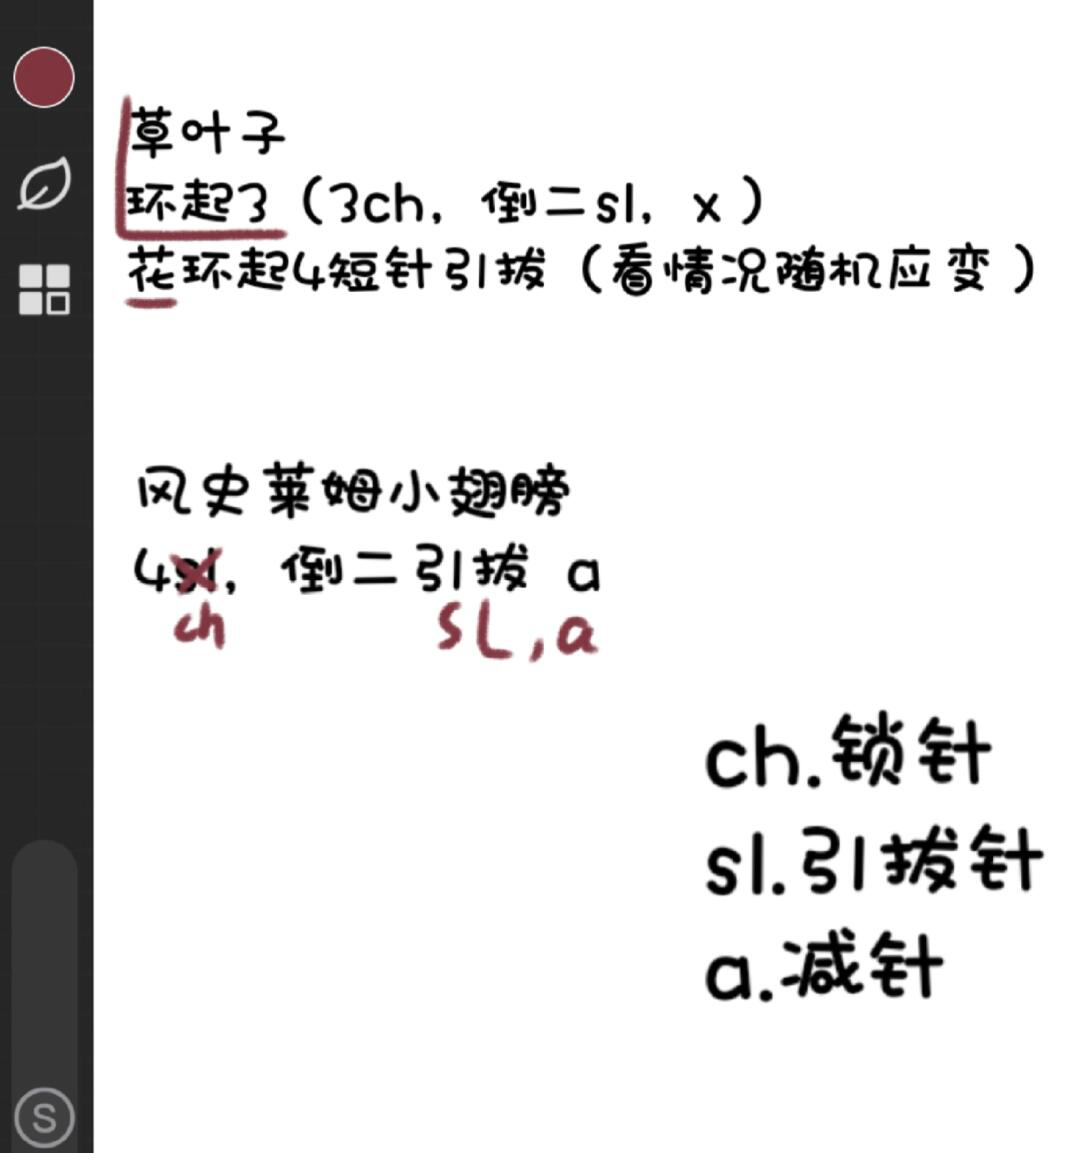 草叶子
环起3（3ch，倒二sl，x）
花环起4短针引拔（看情况随机应变）
风史莱姆小翅膀
4sl，倒二引拔 a
ch SL,a
ch.锁针
sl.引拔针
a.减针
S